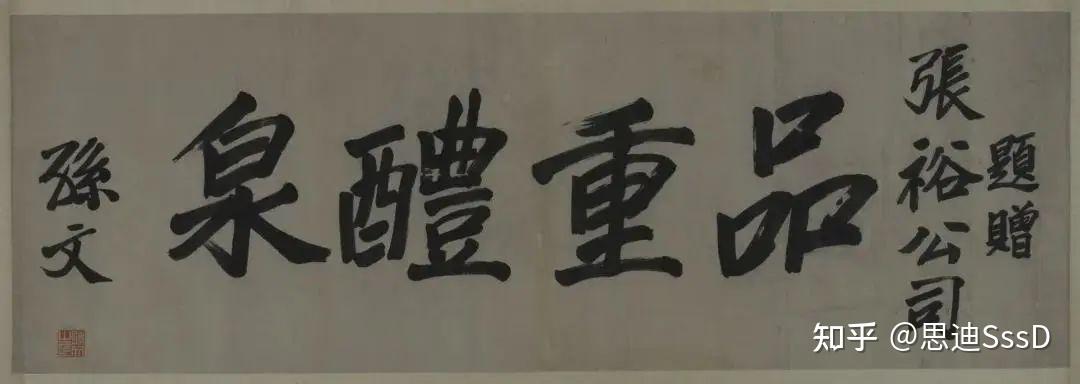 題贈
張裕公司
品重醴泉
孫文
知乎 @思迪SssD